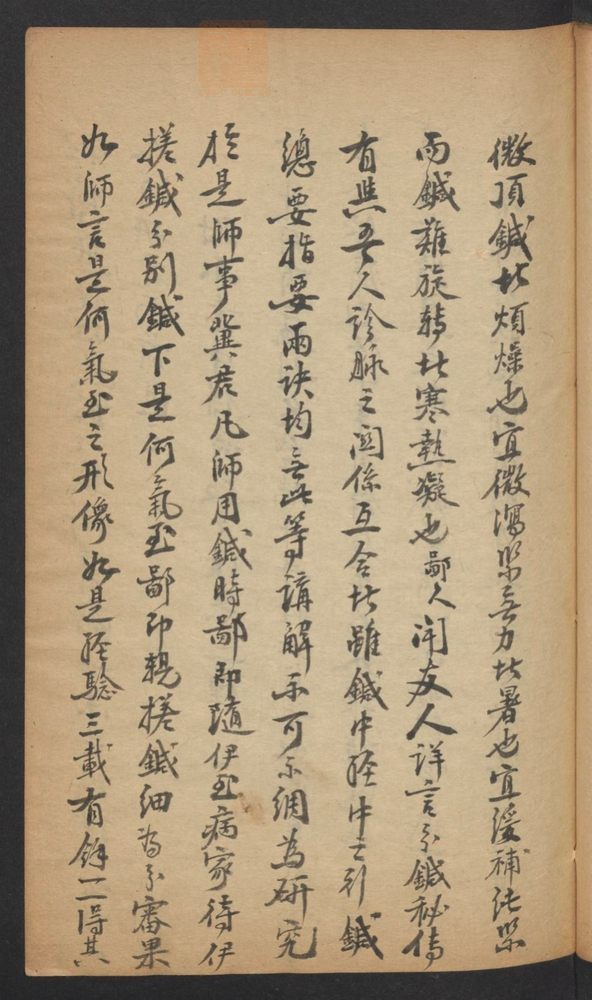 微頂鍼者煩燥也宜微瀉緊無力者暑也宜緩補沈緊
而鍼難旋轉者寒熱凝也鄙人聞友人詳言分鍼秘傳
有與吾人診脉之関係互合者雖鍼中經中之引鍼
總要指要兩訣均無此等講解不可不細為研究
於是師事冀君凡師用鍼時鄙即隨伊至病家待伊
搓鍼分別鍼下是何氣至鄙即親搓鍼細為分審果
如師言是何氣至之形像如是經驗三載有餘一一得其